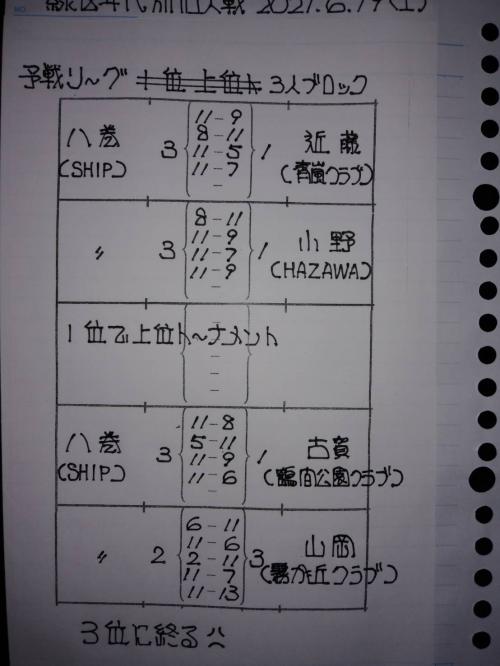 2021.6.19(土)
予戦リーグ 1位 上位へ 3人ブロック
八巻 3 11-9 1 近藤
(SHIP) 8-11 (青嵐クラブ)
11-5
11-7
-
〃 3 8-11 1 小野
11-9 (HAZAWA)
11-7
11-9
-
1位で上位トーナメント
-
-
-
-
八巻 3 11-8 1 古賀
(SHIP) 5-11 (臨空公園クラブ)
11-9
11-6
-
〃 2 6-11 3 山岡
11-6
2-11
11-7
11-13
3位に終る